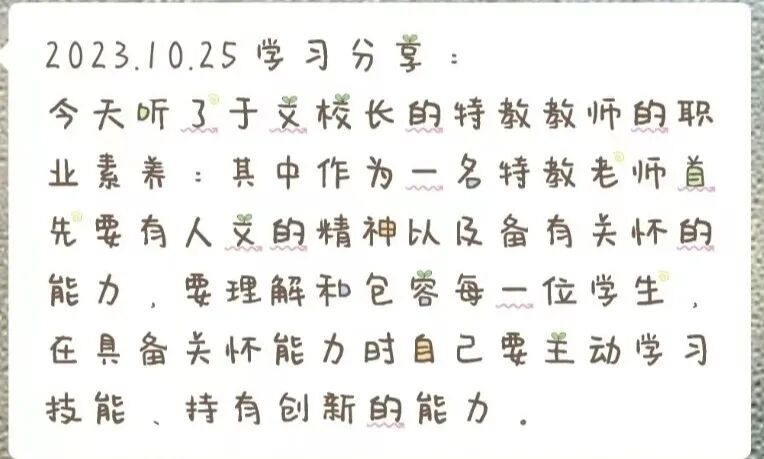 2023.10.25学习分享：
今天听了于文校长的特教教师的职
业素养：其中作为一名特教老师首
先要有人文的精神以及备有关怀的
能力，要理解和包容每一位学生，
在具备关怀能力时自己要主动学习
技能、持有创新的能力．